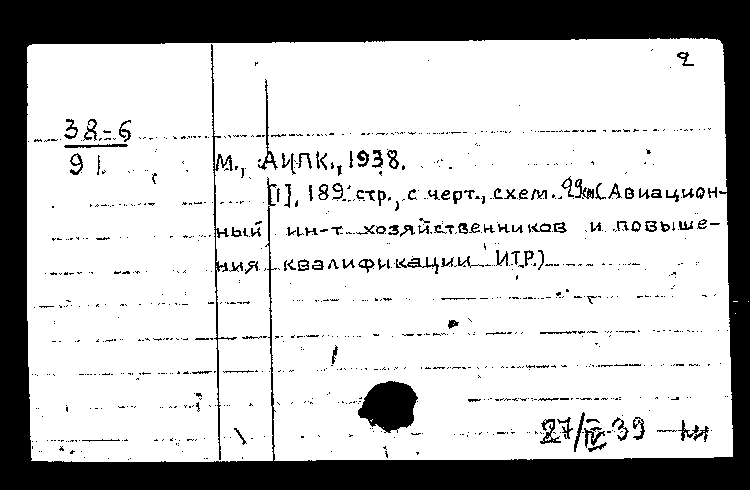 2
38-6
91
М., АИПК., 1938.
[1], 189 стр., с черт., схем. 29см (Авиацион-
ный ин-т хозяйственников и повыше-
ния квалификации ИТР.)
27/IV 39